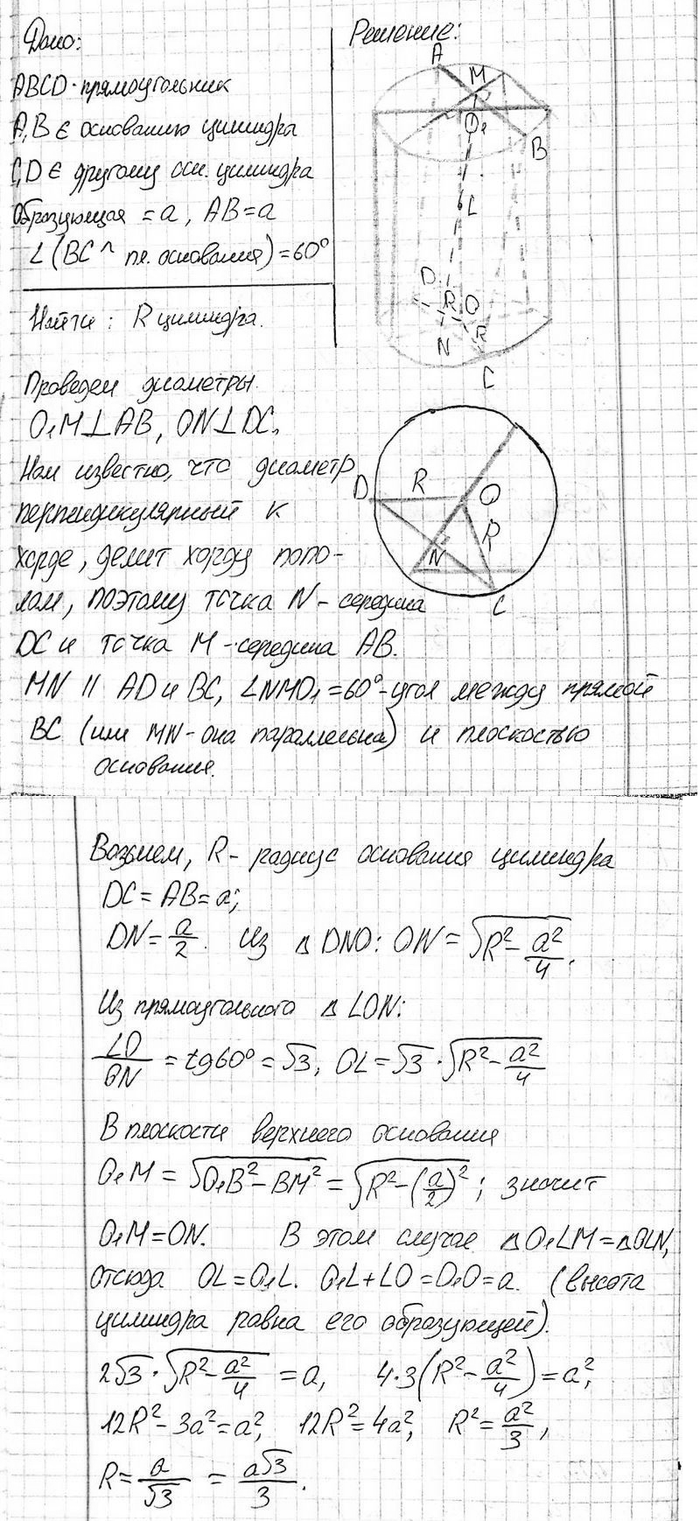 Дано:
Решение:
ABCD - прямоугольник
A,B ∈ основанию цилиндра
C,D ∈ другому осн. цилиндра
Образующая = a, AB=a
∠(BC ^ пл. основания)=60°
Найти: R цилиндра.
A
M
O₁
B
L
D
R
O
R
N
C
Проведем диаметры
O₁M⊥AB, ON⊥DC,
Нам известно, что диаметр
перпендикулярный к
хорде, делит хорду попо-
лам, поэтому точка N - середина
DC и точка M - середина AB.
D
R
O
R
N
C
MN || AD и BC, ∠NMO₁=60° - угол между прямой
BC (или MN - она параллельна) и плоскостью
основания.
Возьмем, R - радиус основания цилиндра
DC = AB = a;
DN = a/2. Из △DNO: ON = √(R² - a²/4).
Из прямоугольного △LON:
LO/ON = tg60° = √3, OL = √3 · √(R² - a²/4)
В плоскости верхнего основания
O₁M = √(O₁B² - BM²) = √(R² - (a/2)²); значит
O₁M = ON. В этом случае △O₁LM = △OLN,
отсюда OL = O₁L. O₁L + LO = O₁O = a. (высота
цилиндра равна его образующей).
2√3 · √(R² - a²/4) = a, 4·3(R² - a²/4) = a²;
12R² - 3a² = a², 12R² = 4a², R² = a²/3,
R = a/√3 = a√3/3.